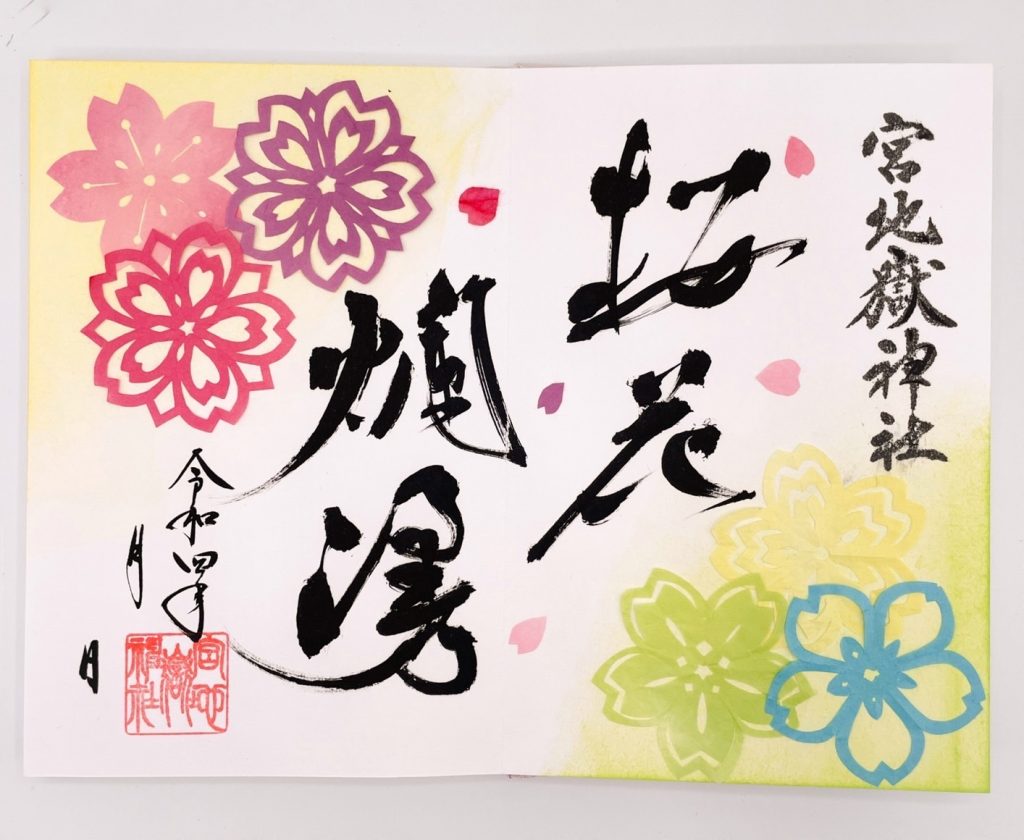 宮地嶽神社
桜花
爛漫
令和四年
月
日
宮地
嶽
神社